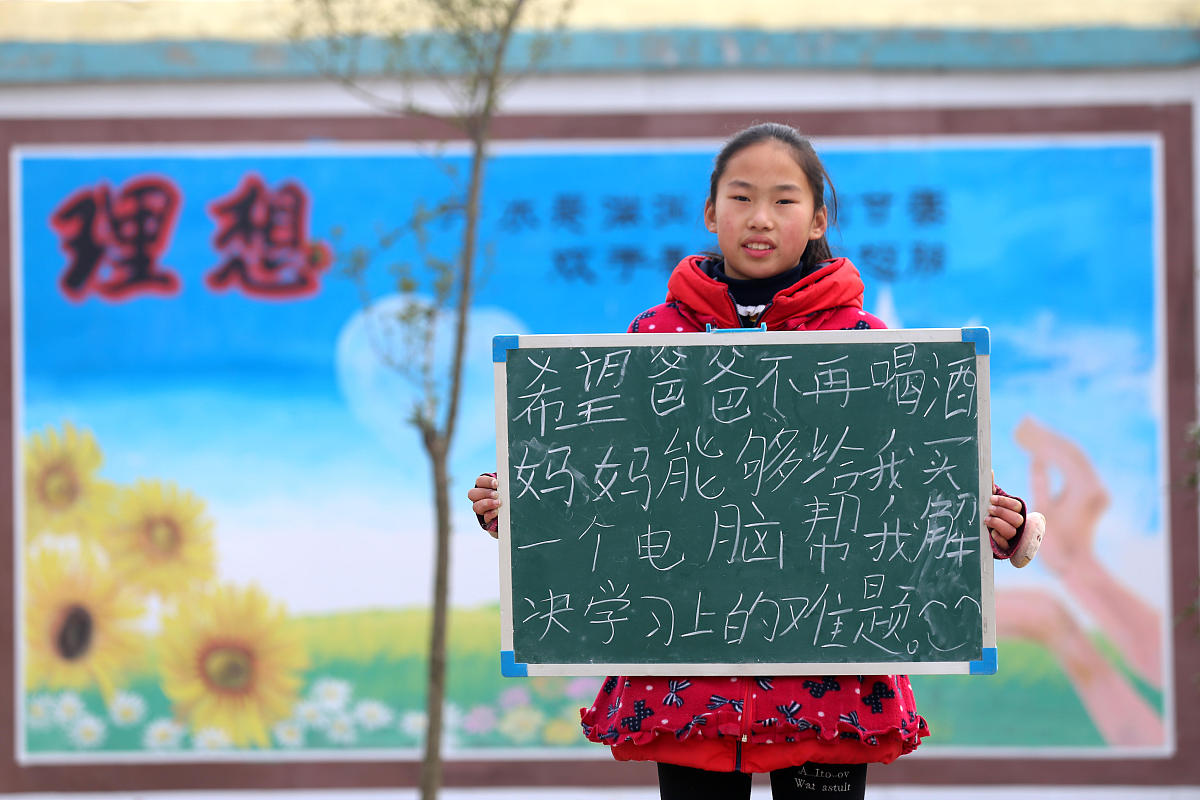 理想
希望爸爸不再喝酒
妈妈能够给我买
一个电脑帮我解
决学习上的难题。